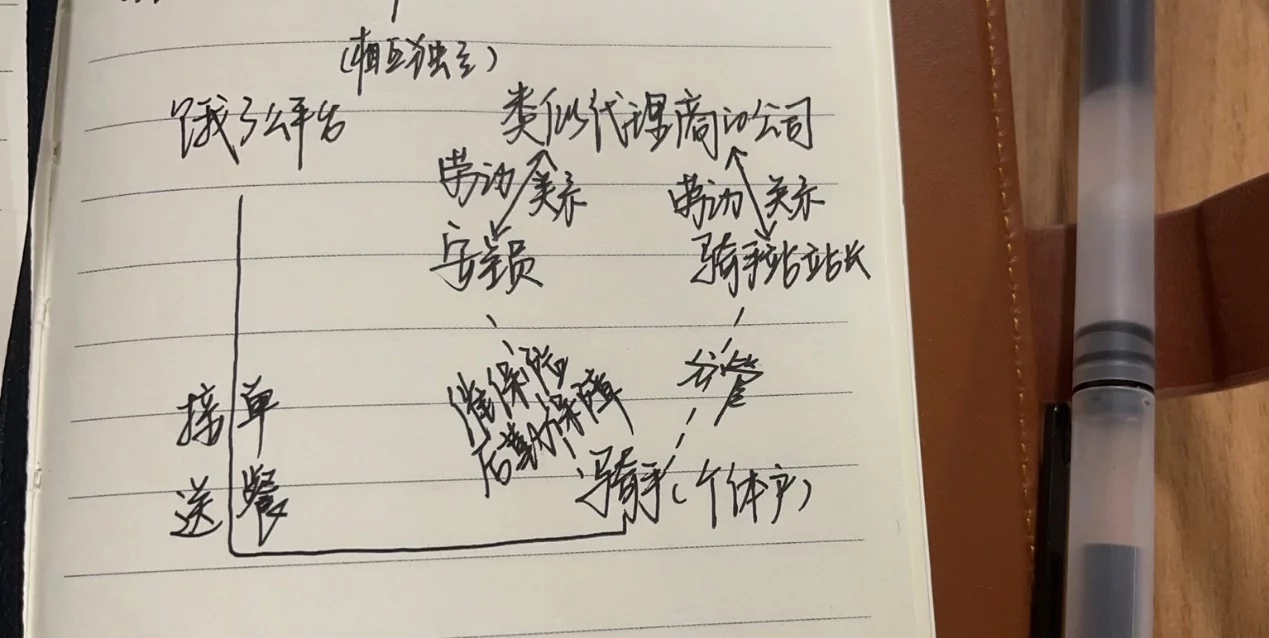 (相互独立)
饿了么平台 类似代理商的公司
劳动关系 劳动关系
安全员 骑手站站长
催保险 分管
后勤保障
接单
骑手(个体户)
送餐